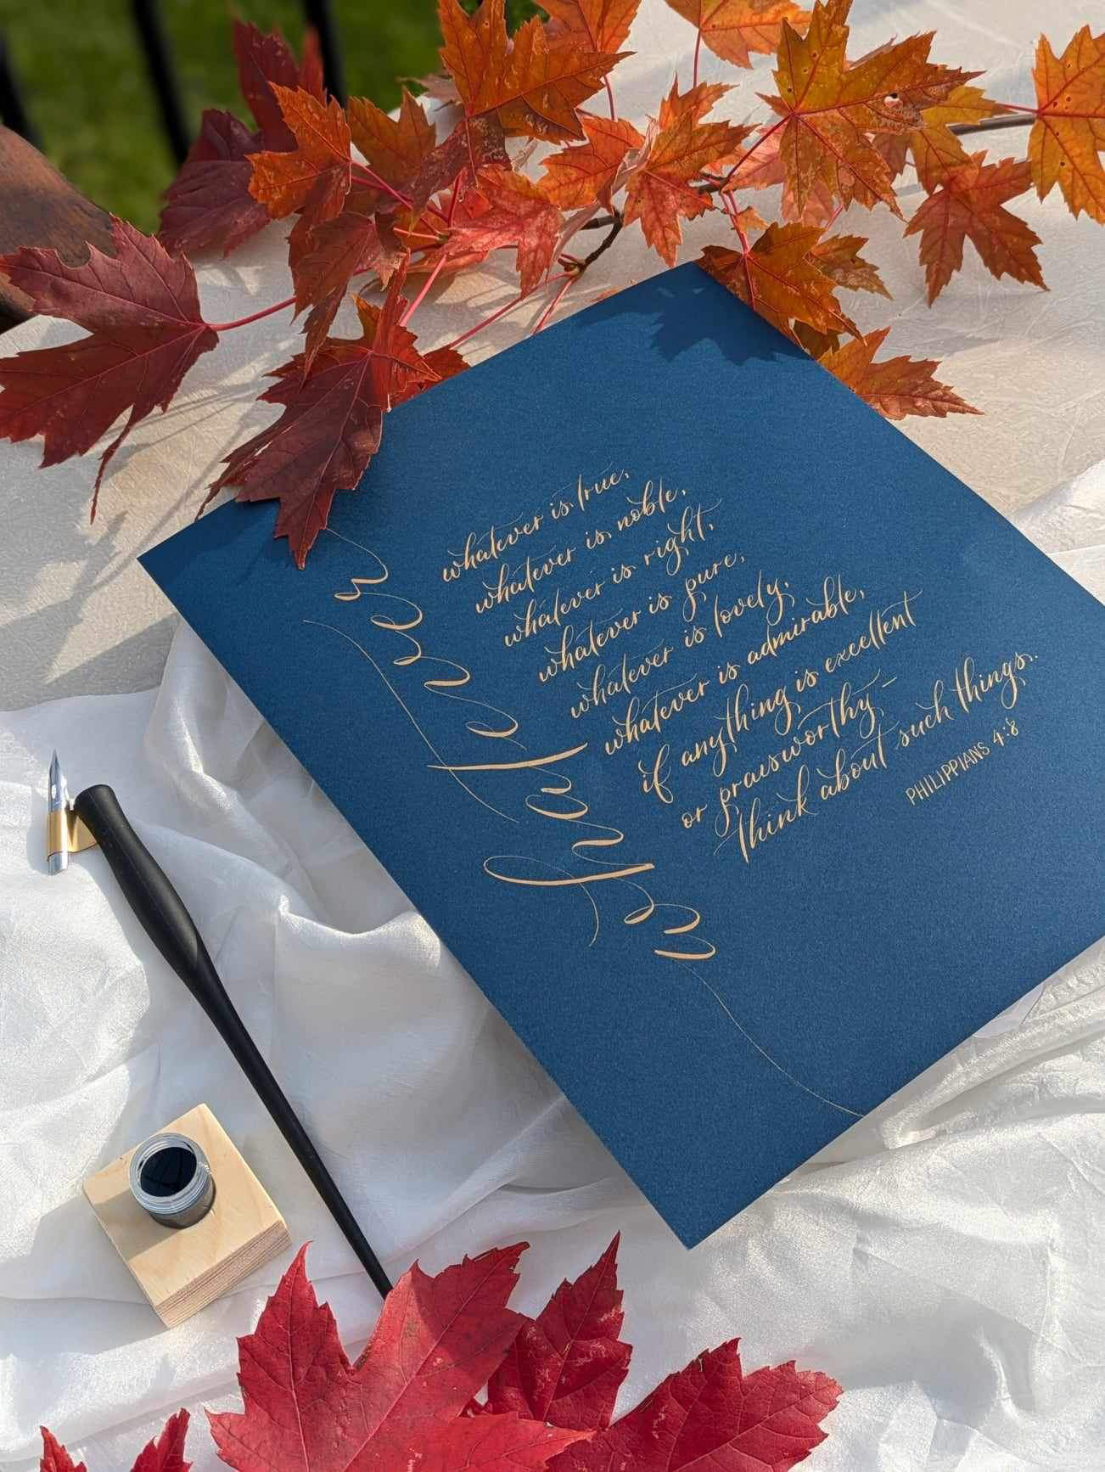 whatever
whatever is true,
whatever is noble,
whatever is right,
whatever is pure,
whatever is lovely,
whatever is admirable,
if anything is excellent
or praiseworthy—
think about such things.
PHILIPPIANS 4:8